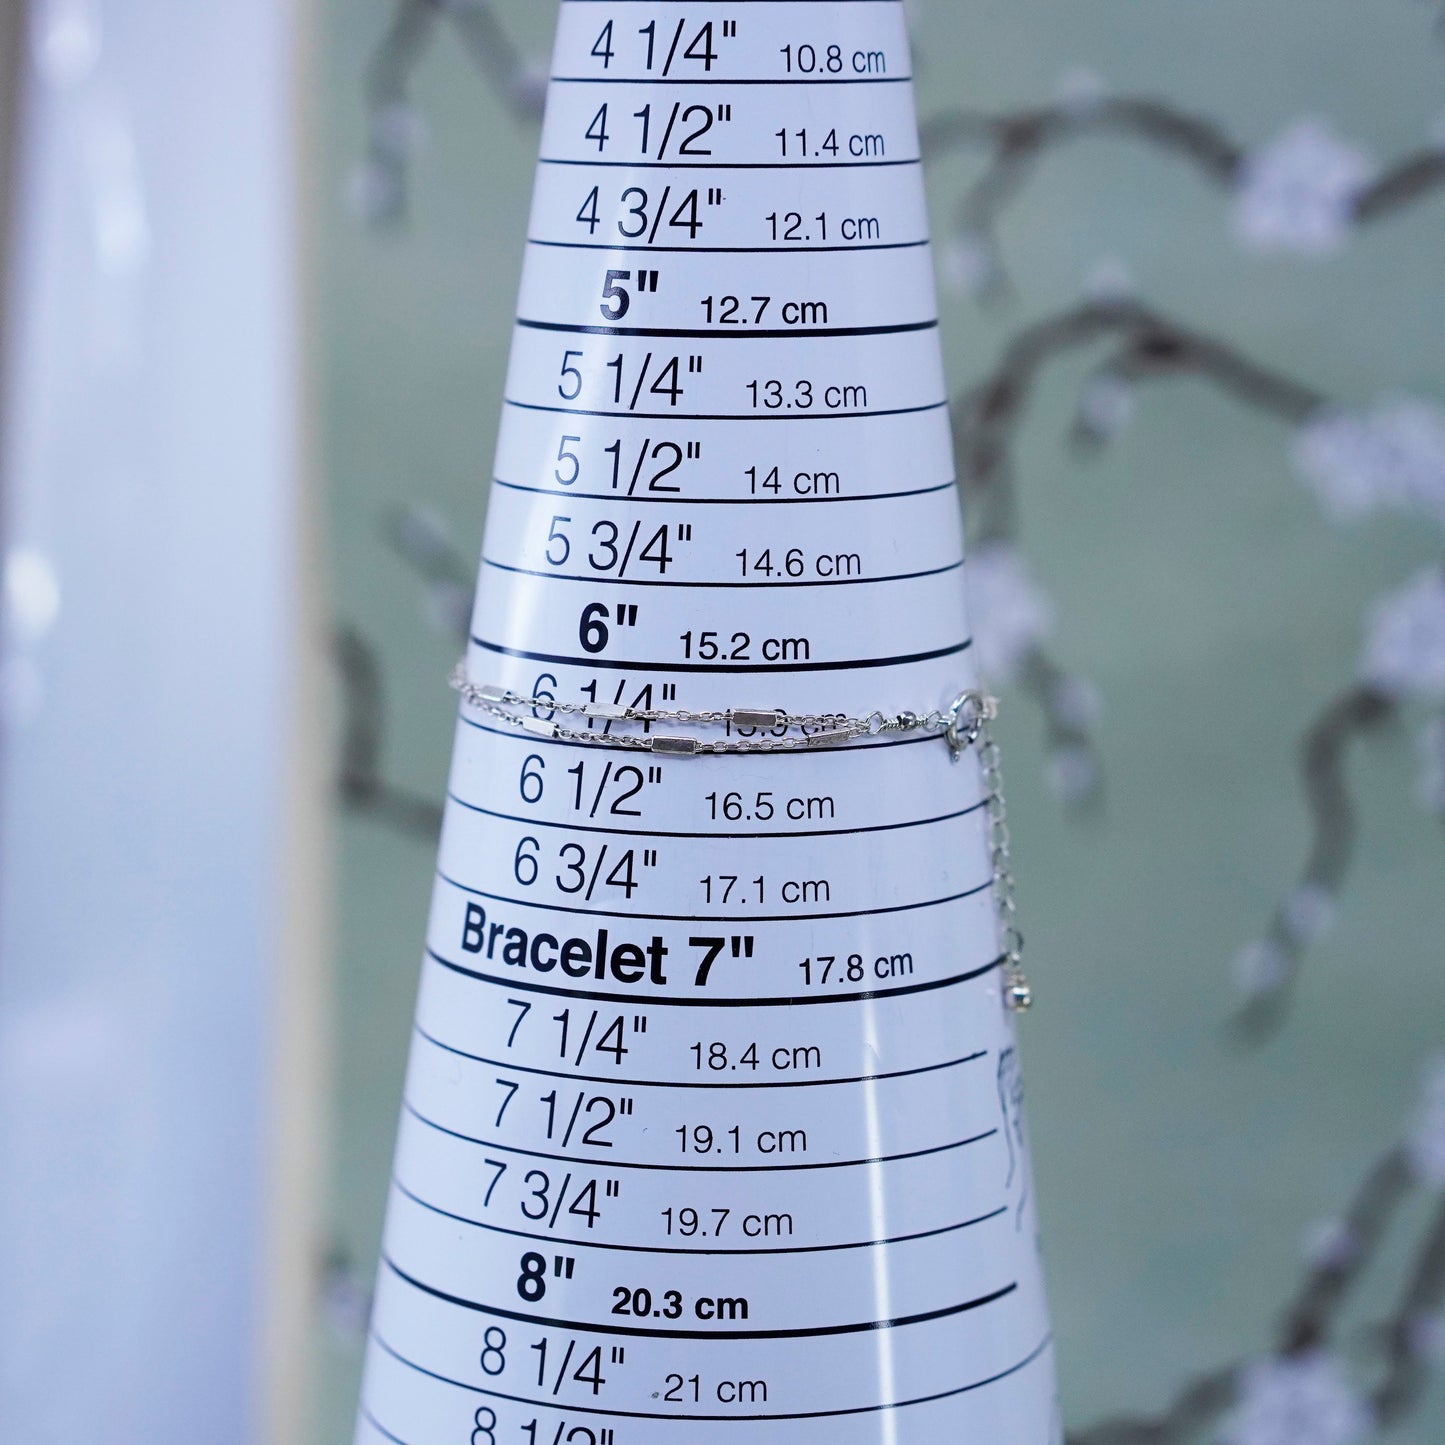 4 1/4" 10.8 cm
4 1/2" 11.4 cm
4 3/4" 12.1 cm
5" 12.7 cm
5 1/4" 13.3 cm
5 1/2" 14 cm
5 3/4" 14.6 cm
6" 15.2 cm
6 1/4" 15.9 cm
6 1/2" 16.5 cm
6 3/4" 17.1 cm
Bracelet 7" 17.8 cm
7 1/4" 18.4 cm
7 1/2" 19.1 cm
7 3/4" 19.7 cm
8" 20.3 cm
8 1/4" 21 cm
8 1/2"